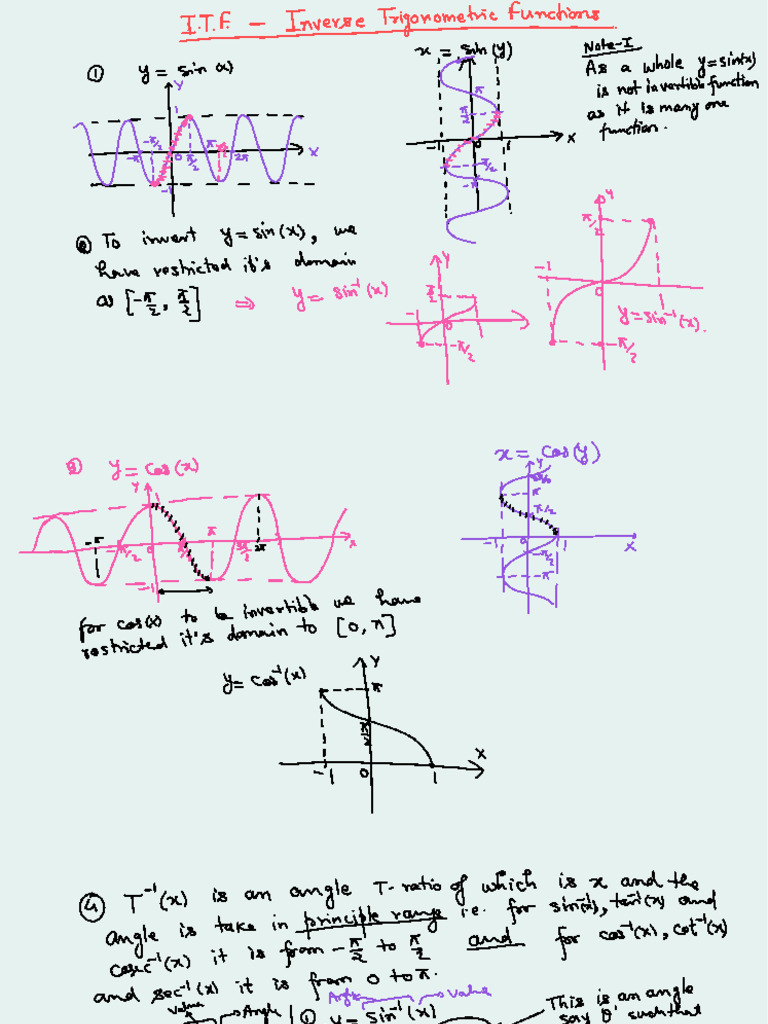 I.T.F. – Inverse Trigonometric Functions
① y = sin (x)
Y
1
-π/2
-π
0
π/2
π
2π
X
-1
x = sin(y)
π
π/2
-1
0
1
X
-π/2
-π
Note-I
As a whole y=sin(x)
is not invertible function
as it is many one
function.
② To invert y=sin(x), we
have restricted it's domain
as [-π/2, π/2] ⇒ y = sin⁻¹(x)
Y
π/2
-1
0
-π/2
Y
π/2
-1
0
1
y=sin⁻¹(x).
-π/2
③ y = cos(x)
Y
-π
-π/2
0
π
3π/2
2π
X
-1
x = cos(y)
Y
π
π/2
-1
1
X
-π/2
-π
for cos(x) to be invertible we have
restricted it's domain to [0, π]
y = cos⁻¹(x)
Y
π
π/2
X
-1
0
1
④ T⁻¹(x) is an angle T-ratio of which is x and the
angle is take in principle range i.e. for sin⁻¹(x), tan⁻¹(x) and
cosec⁻¹(x) it is from -π/2 to π/2 and for cos⁻¹(x), cot⁻¹(x)
and sec⁻¹(x) it is from 0 to π.
Angle
Value
Value
Angle
① y = sin⁻¹(x)
This is an angle
say θ' such that